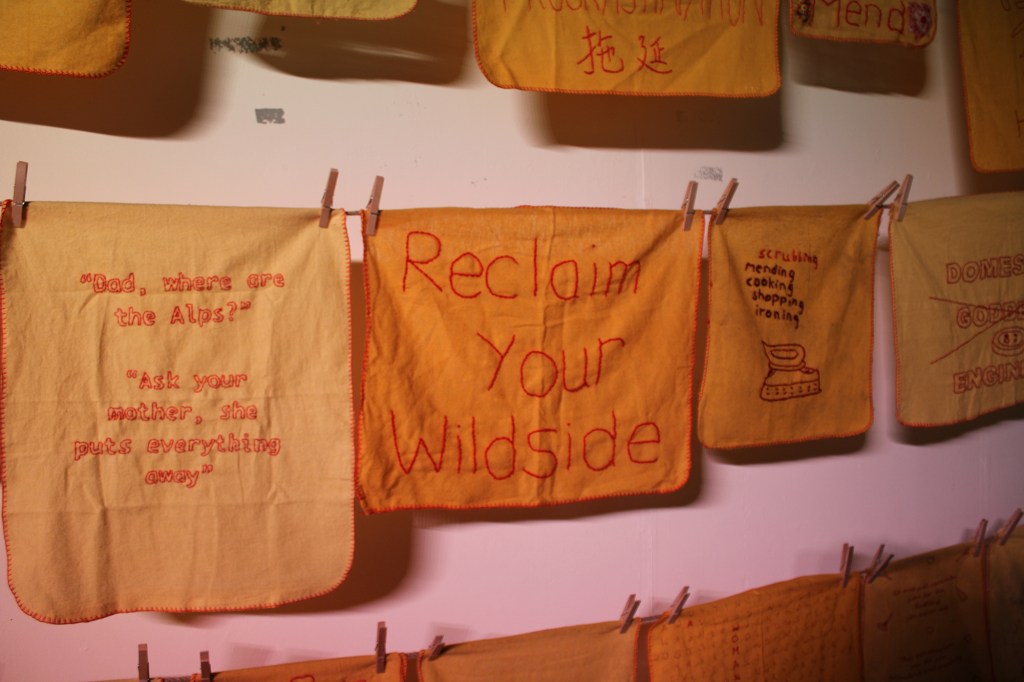 PROCRASTINATION
拖延
Mend
"Dad, where are
the Alps?"
"Ask your
mother, she
puts everything
away"
Reclaim
Your
Wildside
scrubbing
mending
cooking
shopping
ironing
DOMES
GODD
ENGIN